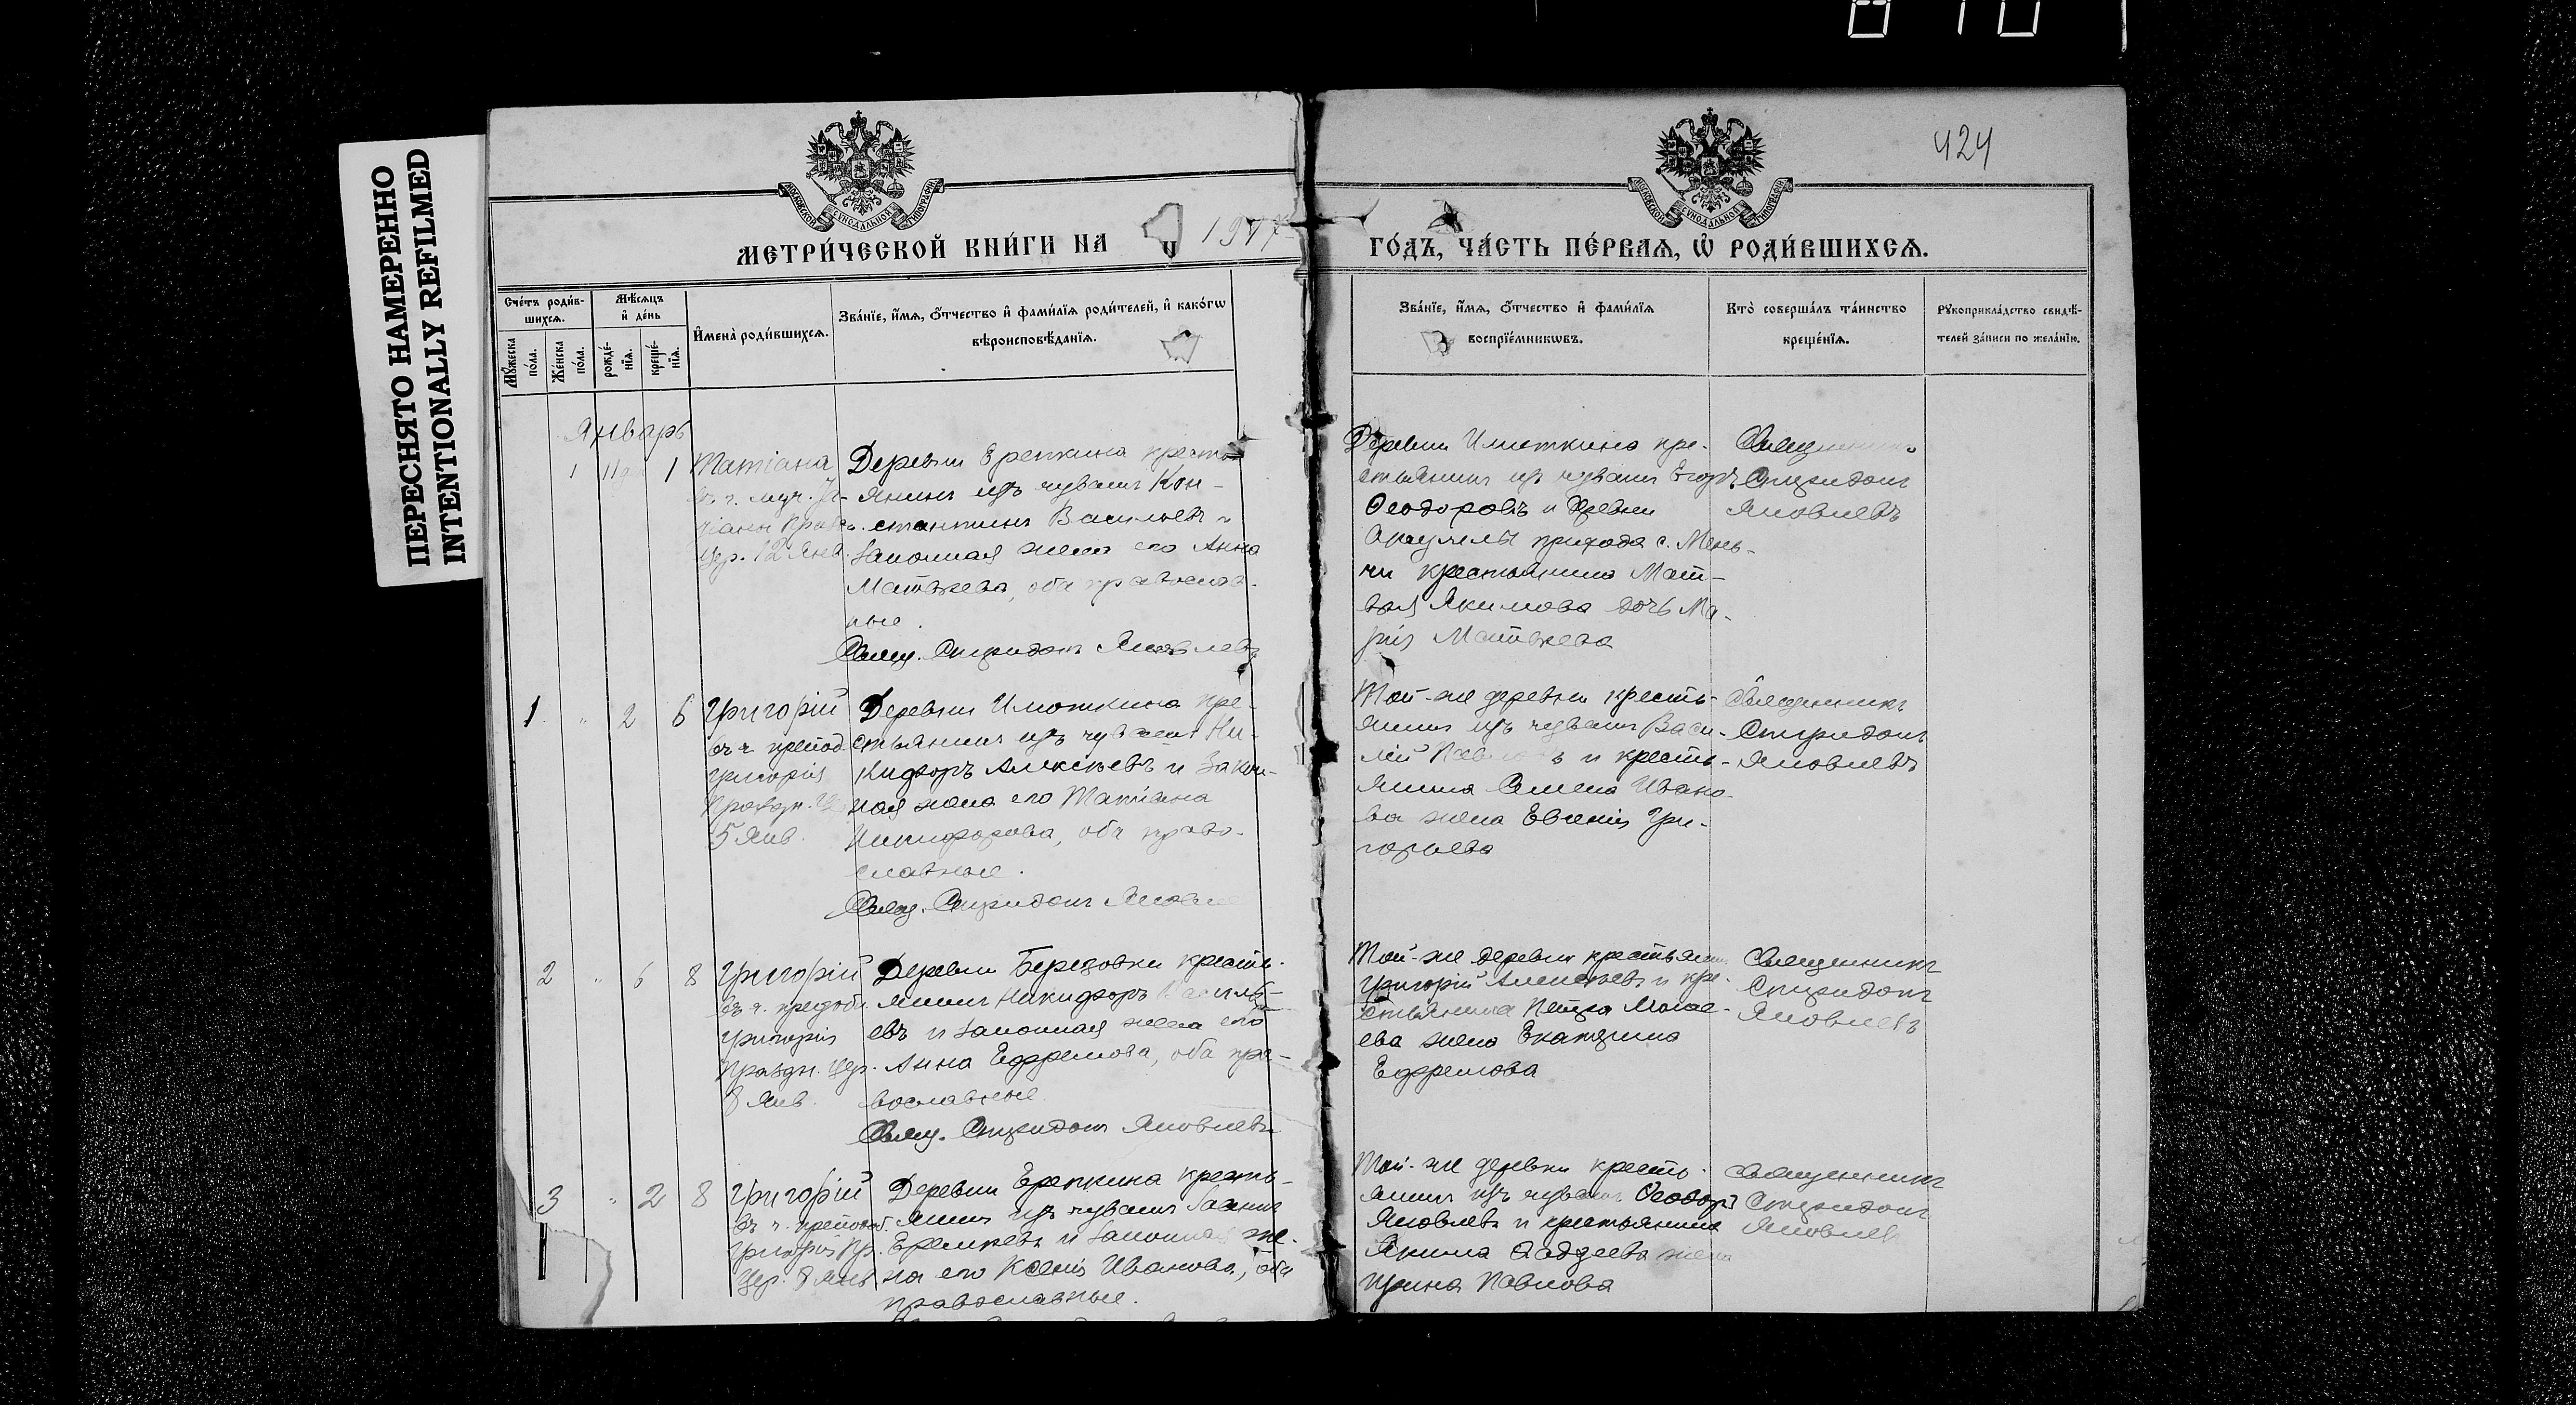 ПЕРЕСНЯТО НАМЕРЕННО
INTENTIONALLY REFILMED
424
МОСКОВСКОЙ СѴНОДАЛЬНОЙ ТИПОГРАФІИ
МОСКОВСКОЙ СѴНОДАЛЬНОЙ ТИПОГРАФІИ
МЕТРИ́ЧЕСКОЙ КНИ́ГИ НА 1917
ГО́ДЪ, ЧА́СТЬ ПЕ́РВАѦ, Ѡ҆ РОДИ́ВШИХСѦ.
Сче́тъ роди́в-
шихсѧ.
Мꙋ́жеска
по́ла.
Же́нска
по́ла.
Мѣ́сѧцъ
и҆ де́нь
рожде́-
нїѧ.
креще́-
нїѧ.
И҆мена̀ роди́вшихсѧ.
Зва́нїе, и҆́мѧ, ѻ҆́тчество и҆ фами́лїѧ роди́телей, и҆ како́гѡ
вѣроисповѣ́данїѧ.
Зва́нїе, и҆́мѧ, ѻ҆́тчество и҆ фами́лїѧ
воспрїе́мникѡвъ.
Кто̀ соверша́лъ та́инство
креще́нїѧ.
Рꙋкоприкла́дство свидѣ́-
телей за́писи по жела́нїю.
Январь
1 1
Татіана
въ ч. муч. Та-
тіаны Празд.
Цер. 12 Янв.
Деревни Ерепкина кресть-
янинъ изъ чувашъ Кон-
стантинъ Васильевъ и
законная жена его Анна
Матвѣева, оба православ-
ные.
Свящ. Спиридонъ Яковлевъ
Деревни Илюткина кре-
стьянинъ изъ чувашъ Егоръ
Ѳеодоровъ и деревни
прихода с. Мень-
чи крестьянина Мат-
вея Якимова дочь Ма-
рія Матвѣева
Священникъ
Спиридонъ
Яковлевъ
1 " 2 6
Григорій
въ ч. препод.
Григорія
Праздн. Цер.
5 Янв.
Деревни Илюткина кре-
стьянинъ изъ чувашъ Ни-
кифоръ Алексѣевъ и закон-
ная жена его Татіана
Никифорова, оба право-
славные.
Свящ. Спиридонъ Яковле
Той-же деревни кресть-
янинъ изъ чувашъ Васи-
лій и кресть-
янина Семена Ивано-
ва жена Евгенія Гри-
горьева
Священникъ
Спиридонъ
Яковлевъ
2 " 6 8
Григорій
въ ч. преподоб.
Григорія
Праздн. Цер.
8 Янв.
Деревни Березовки кресть-
янинъ Никифоръ Василь-
евъ и законная жена его
Анна Ефремова, оба пра-
вославные
Свящ. Спиридонъ Яковлевъ
Той-же деревни крестьянинъ
Григорій Алексѣевъ и кре-
стьянина Петра Моисе-
ева жена Екатерина
Ефремова
Священникъ
Спиридонъ
Яковлевъ
3 " 2 8
Григорій
въ ч. преподоб.
Григорія Пр.
Цер. 8 Янв
Деревни Ерепкина кресть-
янинъ изъ чувашъ
Еремѣевъ и законная же-
на его Ксенія Иванова, оба
православные.
Той-же деревни кресть-
янинъ изъ чувашъ Ѳеодоръ
Яковлевъ и крестьянина
Якима Ѳаддеева жена
Ирина Павлова
Священникъ
Спиридонъ
Яковлев